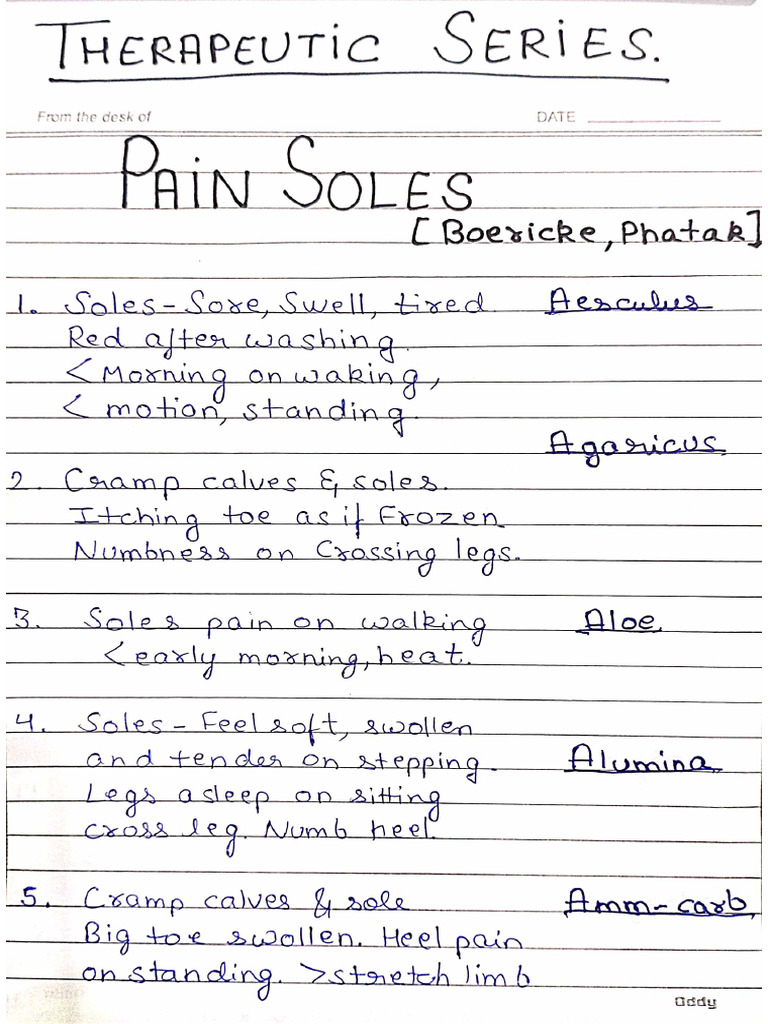 THERAPEUTIC SERIES.
From the desk of DATE
PAIN SOLES
[Boericke, Phatak]
1. Soles - Sore, Swell, tired Aesculus
Red after washing.
< Morning on waking,
< motion, standing.
Agaricus.
2. Cramp calves & soles.
Itching toe as if Frozen
Numbness on Crossing legs.
3. Soles pain on walking Aloe
< early morning, heat.
4. Soles - Feel soft, swollen
and tender on stepping. Alumina
Legs asleep on sitting
cross leg. Numb heel.
5. Cramp calves & sole Amm-carb
Big toe swollen. Heel pain
on standing. >stretch limb
Oddy